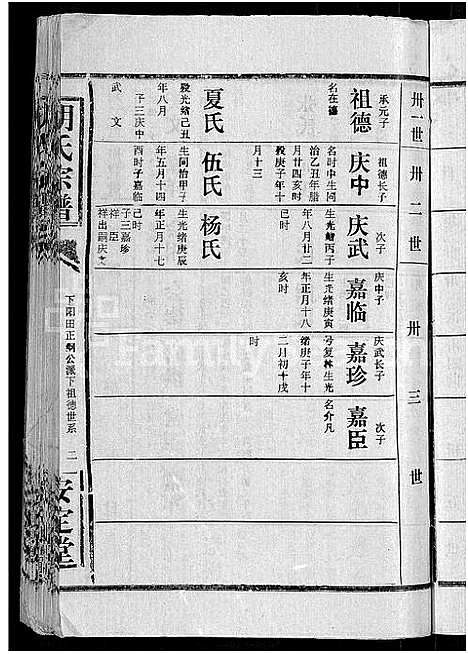 卅一世
卅二世
卅三世
承元子
祖德
名在德
夏氏
殁光绪己丑
年八月
子三庆中
武 文
祖德长子
庆中
名时中生同
治乙丑年腊
月廿四亥时
殁庚子年十
月十三
伍氏
生同治甲子
年五月十四
酉时子嘉临
次子
庆武
生光绪丙子
年八月廿二
巳时
杨氏
生光绪庚辰
年正月十七
己时
子三嘉珍
祥臣
祥出嗣庆文
庆中子
嘉临
生光绪庚寅
年正月十八
亥时
庆武长子
嘉珍
号复林生光
绪庚子年十
二月初十戌
时
次子
嘉臣
名介凡
胡氏宗谱
下阳田正纲公派下祖德世系
二
安定堂
Family